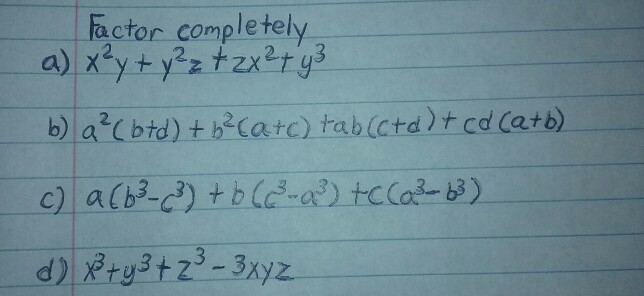 Factor completely
a) x²y + y²z + zx² + y³
b) a²(b+d) + b²(a+c) + ab(c+d) + cd(a+b)
c) a(b³-c³) + b(c³-a³) + c(a³-b³)
d) x³+y³+z³-3xyz